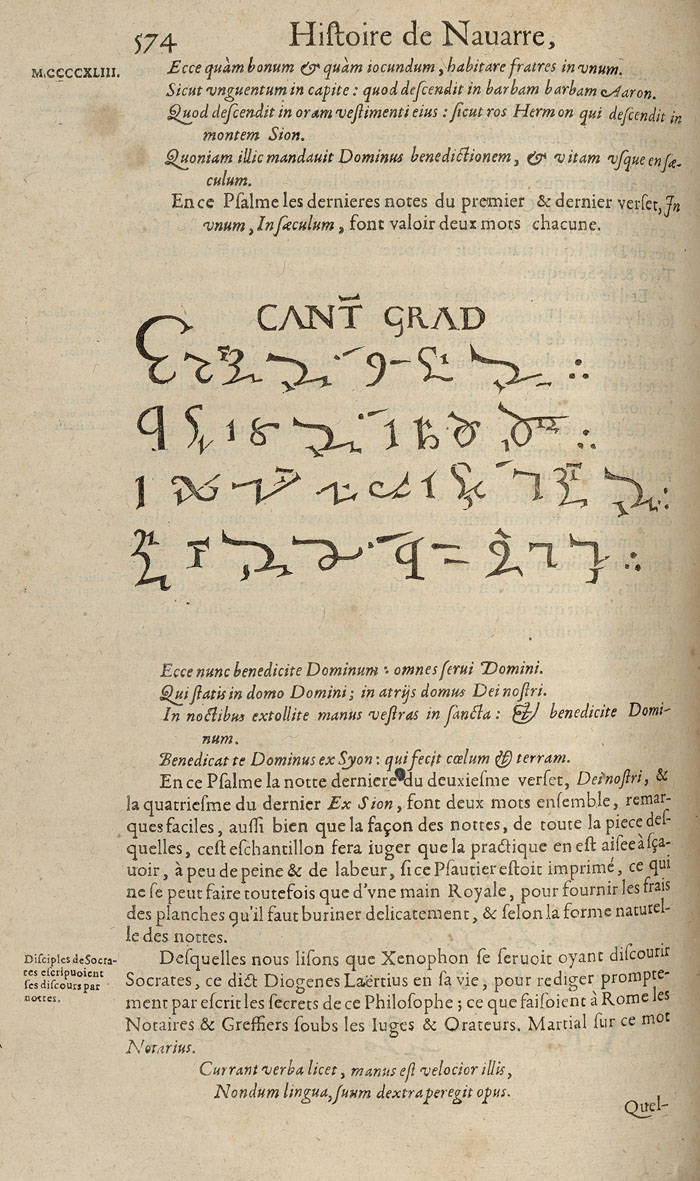 574 Hiſtoire de Nauarre,
M.CCCCXLIII.
Ecce quàm bonum & quàm iocundum, habitare fratres in vnum.
Sicut vnguentum in capite : quod deſcendit in barbam barbam Aaron.
Quod deſcendit in oram veſtimenti eius : ſicut ros Hermon qui deſcendit in
montem Sion.
Quoniam illic mandauit Dominus benedictionem, & vitam vſque en ſæ-
culum.
En ce Pſalme les dernieres notes du premier & dernier verſet, In
vnum, In ſæculum, font valoir deux mots chacune.
CANT̄ GRAD
Ecce nunc benedicite Dominum : omnes ſerui Domini.
Qui ſtatis in domo Domini ; in atrijs domus Dei noſtri.
In noctibus extollite manus veſtras in ſancta : & benedicite Domi-
num.
Benedicat te Dominus ex Syon : qui fecit cœlum & terram.
En ce Pſalme la notte derniere du deuxieſme verſet, Dei noſtri, &
la quatrieſme du dernier Ex Sion, font deux mots enſemble, remar-
ques faciles, auſſi bien que la façon des nottes, de toute la piece deſ-
quelles, ceſt eſchantillon fera iuger que la practique en eſt aiſee à ſça-
uoir, à peu de peine & de labeur, ſi ce Pſautier eſtoit imprimé, ce qui
ne ſe peut faire toutefois que d'vne main Royale, pour fournir les frais
des planches qu'il faut buriner delicatement, & ſelon la forme naturel-
le des nottes.
Deſquelles nous liſons que Xenophon ſe ſeruoit oyant diſcourir
Diſciples de Socra-
tes eſcripuoient
ſes diſcours par
nottes.
Socrates, ce dict Diogenes Laërtius en ſa vie, pour rediger prompte-
ment par eſcrit les ſecrets de ce Philoſophe ; ce que faiſoient à Rome les
Notaires & Greffiers ſoubs les Iuges & Orateurs. Martial ſur ce mot
Notarius.
Currant verba licet, manus eſt velocior illis,
Nondum lingua, ſuum dextra peregit opus.
Quel-